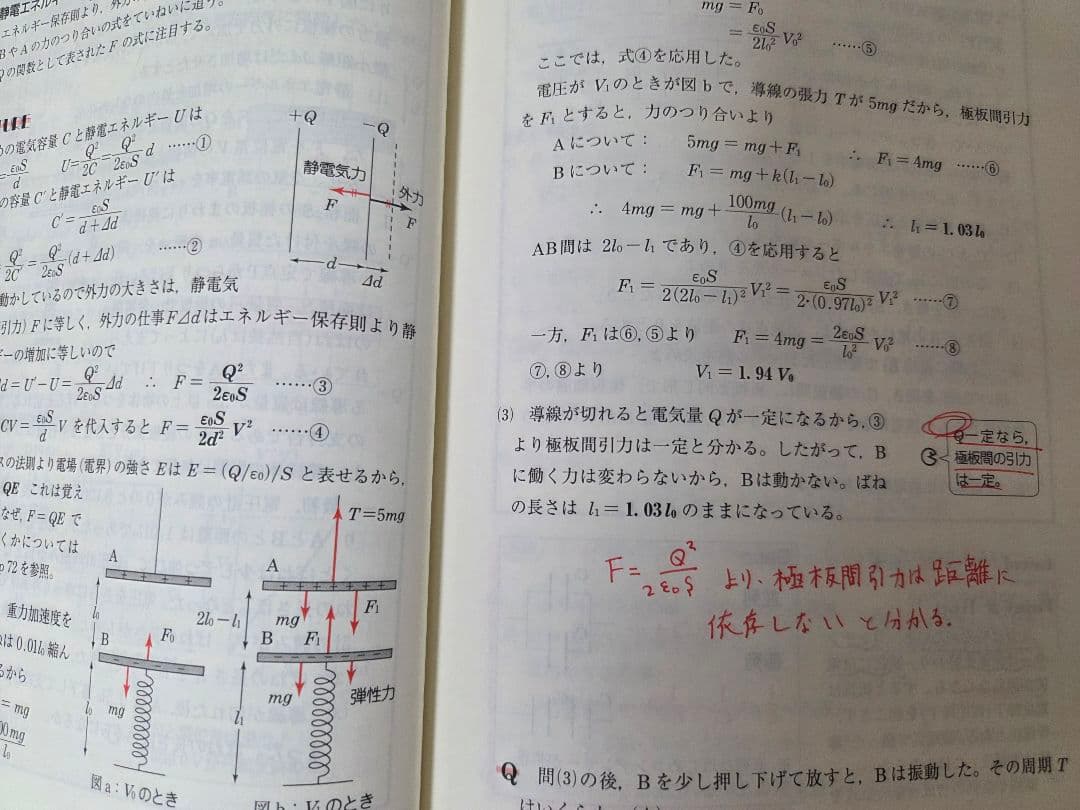 静電エネルギ
エネルギー保存則より，外力
BやAの力のつり合いの式をていねいに追う。
Qの関数として表されたFの式に注目する。
の電気容量Cと静電エネルギーUは
ε₀S/d U=Q²/2C=Q²/2ε₀S d ……①
の容量C′と静電エネルギーU′は
C′=ε₀S/(d+Δd)
Q²/2C′=Q²/2ε₀S (d+Δd) ……②
動かしているので外力の大きさは，静電気
引力）Fに等しく，外力の仕事FΔdはエネルギー保存則より静
ギーの増加に等しいので
d=U′−U=Q²/2ε₀S Δd ∴ F=Q²/2ε₀S ……③
CV=ε₀S/d Vを代入すると F=ε₀S/2d² V² ……④
スの法則より電場（電界）の強さEはE=(Q/ε₀)/Sと表せるから，
QE これは覚え
なぜ，F=QEで
くかについては
p72を参照。
重力加速度を
は0.01l₀縮ん
るから
=mg
00mg
l₀
+Q
−Q
静電気力
外力
F
F
d
Δd
A
l₀
B
F₀
l₀
mg
図a：V₀のとき
T=5mg
A
mg
F₁
2l₀−l₁
B
F₁
mg
弾性力
l₁
図b：V₁のとき
mg=F₀
=ε₀S/2l₀² V₀² ……⑤
ここでは，式④を応用した。
電圧がV₁のときが図bで，導線の張力Tが5mgだから，極板間引力
をF₁とすると，力のつり合いより
Aについて： 5mg=mg+F₁ ∴ F₁=4mg ……⑥
Bについて： F₁=mg+k(l₁−l₀)
∴ 4mg=mg+100mg/l₀ (l₁−l₀) ∴ l₁=1.03l₀
AB間は2l₀−l₁であり，④を応用すると
F₁=ε₀S/2(2l₀−l₁)² V₁²=ε₀S/2·(0.97l₀)² V₁² ……⑦
一方，F₁は⑥，⑤より F₁=4mg=2ε₀S/l₀² V₀² ……⑧
⑦，⑧より V₁=1.94V₀
(3) 導線が切れると電気量Qが一定になるから，③
より極板間引力は一定と分かる。したがって，B
に働く力は変わらないから，Bは動かない。ばね
の長さは l₁=1.03l₀のままになっている。
Q一定なら，
極板間の引力
は一定。
F=Q²/2ε₀S より、極板間引力は距離に
依存しない と分かる.
Q 問(3)の後，Bを少し押し下げて放すと，Bは振動した。その周期T
はいくらか。